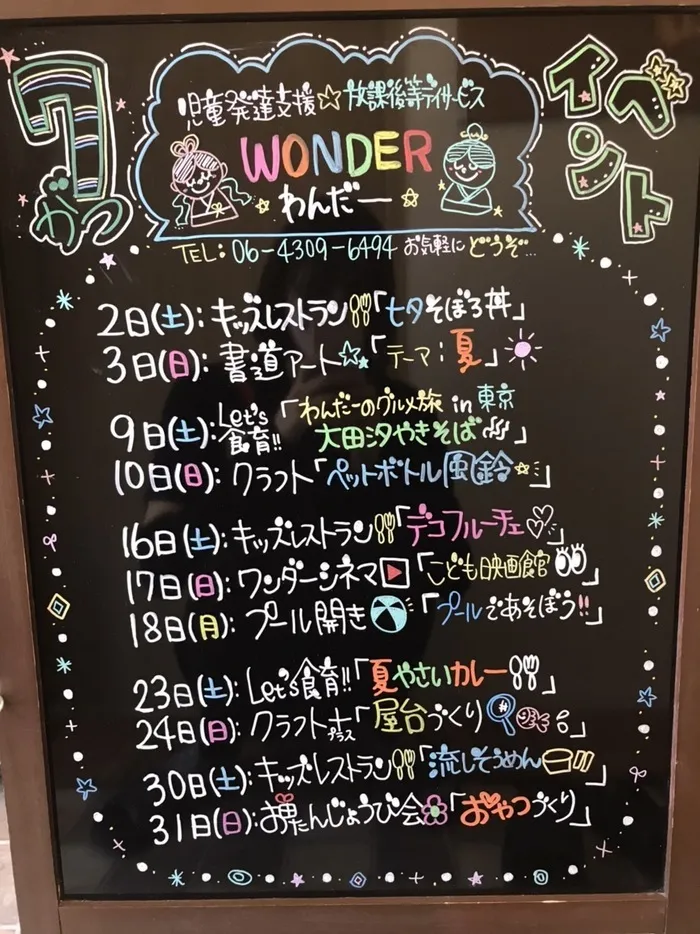 7がつ
イベント
児童発達支援☆放課後等デイサービス
WONDER
わんだー
TEL: 06-4309-6494 お気軽にどうぞ...
2日(土): キッズレストラン「七夕そぼろ丼」
3日(日): 書道アート☆「テーマ:夏」
9日(土): Let's食育!!「わんだーのグルメ旅 in 東京
大田汐やきそば」
10日(日): クラフト「ペットボトル風鈴☆」
16日(土): キッズレストラン「デコフルーチェ♡」
17日(日): ワンダーシネマ▶「こども映画館」
18日(月): プール開き「プールであそぼう!!」
23日(土): Let's食育!!「夏やさいカレー」
24日(日): クラフト+プラス「屋台づくり」
30日(土): キッズレストラン「流しそうめん」
31日(日): お丼たんじょうび会「おやつづくり」